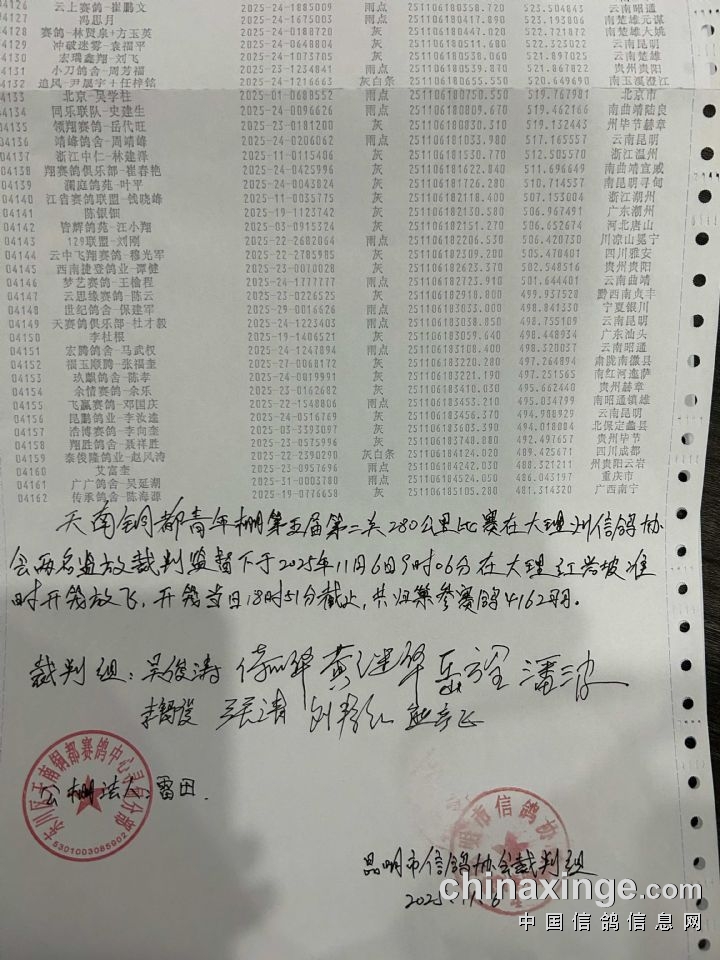 04126 云上赛鸽-崔鹏文 2025-24-1885009 雨点 251106180358.720 523.504843 云南昭通
04127 冯思月 2025-24-1675705 雨点 251106180417.090 523.202838 南楚雄元谋
04128 赛鸽-林贤泉+方玉英 2025-24-0188720 灰 251106180447.020 522.721872 南楚雄大姚
04129 冲破迷雾-袁福平 2025-24-0648804 灰 251106180511.680 云南昆明
04130 宏瑞鑫翔-刘飞 2025-24-0132705 灰 251106180537.050 521.897285 云南楚雄
04131 小刀鸽舍-周芳福 2025-23-1234841 雨点 251106180539.870 521.867822 贵州贵阳
04132 追风-尹晟宇+任梓铭 2025-24-1216663 灰白条 251106180655.550 520.649690 南玉溪澄江
04133 北京-吴学柱 2025-01-0688552 雨点 251106180750.550 519.767981 北京市
04134 同乐联队-史建生 2025-24-0096626 雨点 251106180809.670 519.462166 南曲靖陆良
04135 领翔赛鸽-岳代旺 2025-23-0181200 灰 251106180830.310 519.132443 州毕节赫章
04136 靖峰鸽舍-周靖峰 2025-24-0206062 雨点 251106181033.980 517.165557 云南昆明
04137 浙江中仁-林建泽 2025-11-0115406 灰 251106181530.770 512.505570 浙江温州
04138 翔赛鸽俱乐部-崔春艳 2025-24-0425996 灰 251106181622.840 511.696649 南曲靖宣威
04139 澜庭鸽苑-叶平 2025-24-0043024 灰 251106181726.280 510.714537 南昆明寻甸
04140 江省赛鸽联盟-钱晓峰 2025-11-0035775 灰 251106182118.400 507.153004 浙江湖州
04141 陈银钿 2025-19-1123742 灰 251106182130.580 506.967491 广东潮州
04142 皆辉鸽苑-江小翔 2025-03-0915324 灰 251106182151.270 506.652674 河北唐山
04143 129联盟-刘刚 2025-22-2682064 雨点 251106182206.530 506.420730 川凉山冕宁
04144 云中飞翔赛鸽-穆光军 2025-22-2785985 灰 251106182309.700 505.470805 四川雅安
04145 西南捷登鸽业-谭健 2025-23-0070028 灰 251106182623.370 502.548516 贵州贵阳
04146 梦艺赛鸽-王榆程 2025-24-1777777 雨点 251106182723.910 501.644401 云南曲靖
04147 云思缘赛鸽-陈云 2025-23-0226525 灰 251106182918.800 499.937528 黔西南贞丰
04148 世纪鸽舍-保建军 2025-29-0016626 雨点 251106183033.000 498.841330 宁夏银川
04149 天赛鸽俱乐部-杜才毅 2025-24-1223403 雨点 251106183038.850 498.755109 云南昆明
04150 李杜根 2025-19-1406521 灰 251106183059.860 498.448934 广东汕头
04151 宏腾鸽舍-马武权 2025-24-1247894 雨点 251106183108.400 498.320037 云南昭通
04152 福玉顺腾-张福奎 2025-27-0068172 灰 251106183220.280 497.264894 肃陇南徽县
04153 玖麒鸽舍-陈孝 2025-24-0819991 灰 251106183221.190 497.251565 南红河弥萨
04154 余情赛鸽-余乐 2025-23-0162682 灰 251106183410.030 495.662440 贵州赫章
04155 飞赢赛鸽-邓国庆 2025-22-1548806 雨点 251106183453.750 495.034799 南昭通镇雄
04156 昆鹏鸽业-李汝逵 2025-24-0516769 灰 251106183456.370 494.988929 云南昆明
04157 浩博赛鸽-李向奎 2025-03-3393097 灰 251106183603.390 494.018084 北保定蠡县
04158 翔胜鸽舍-聂祥胜 2025-23-0575996 灰 251106183748.880 492.497657 贵州毕节
04159 泰俊隆鸽业-赵风涛 2025-22-2390290 灰白条 251106184124.410 489.155111 四川成都
04160 艾富奎 2025-23-0957696 雨点 251106184242.050 488.321211 州贵阳云岩
04161 广广鸽舍-吴延湖 2025-31-0083030 雨点 251106184524.950 486.231107 重庆市
04162 传承鸽舍-陈海源 2025-19-0776658 灰 251106185124.650 481.314180 广西南宁
天南铜都青年棚第五届第二关280公里比赛在大理州信鸽协
会两名监放裁判监督下于2025年11月6日9时06分在大理红岩坡准
时开笼放飞，开笼当日18时51分截止，共归巢参赛鸽4162羽。
裁判组：吴俊涛 黄继华 潘波
公棚法人：雷田.
东川区天南铜都赛鸽中心
5301003085902
昆明市信鸽协会
昆明市信鸽协会裁判组
2025.11.6
chinaxinge.com
中国信鸽信息网